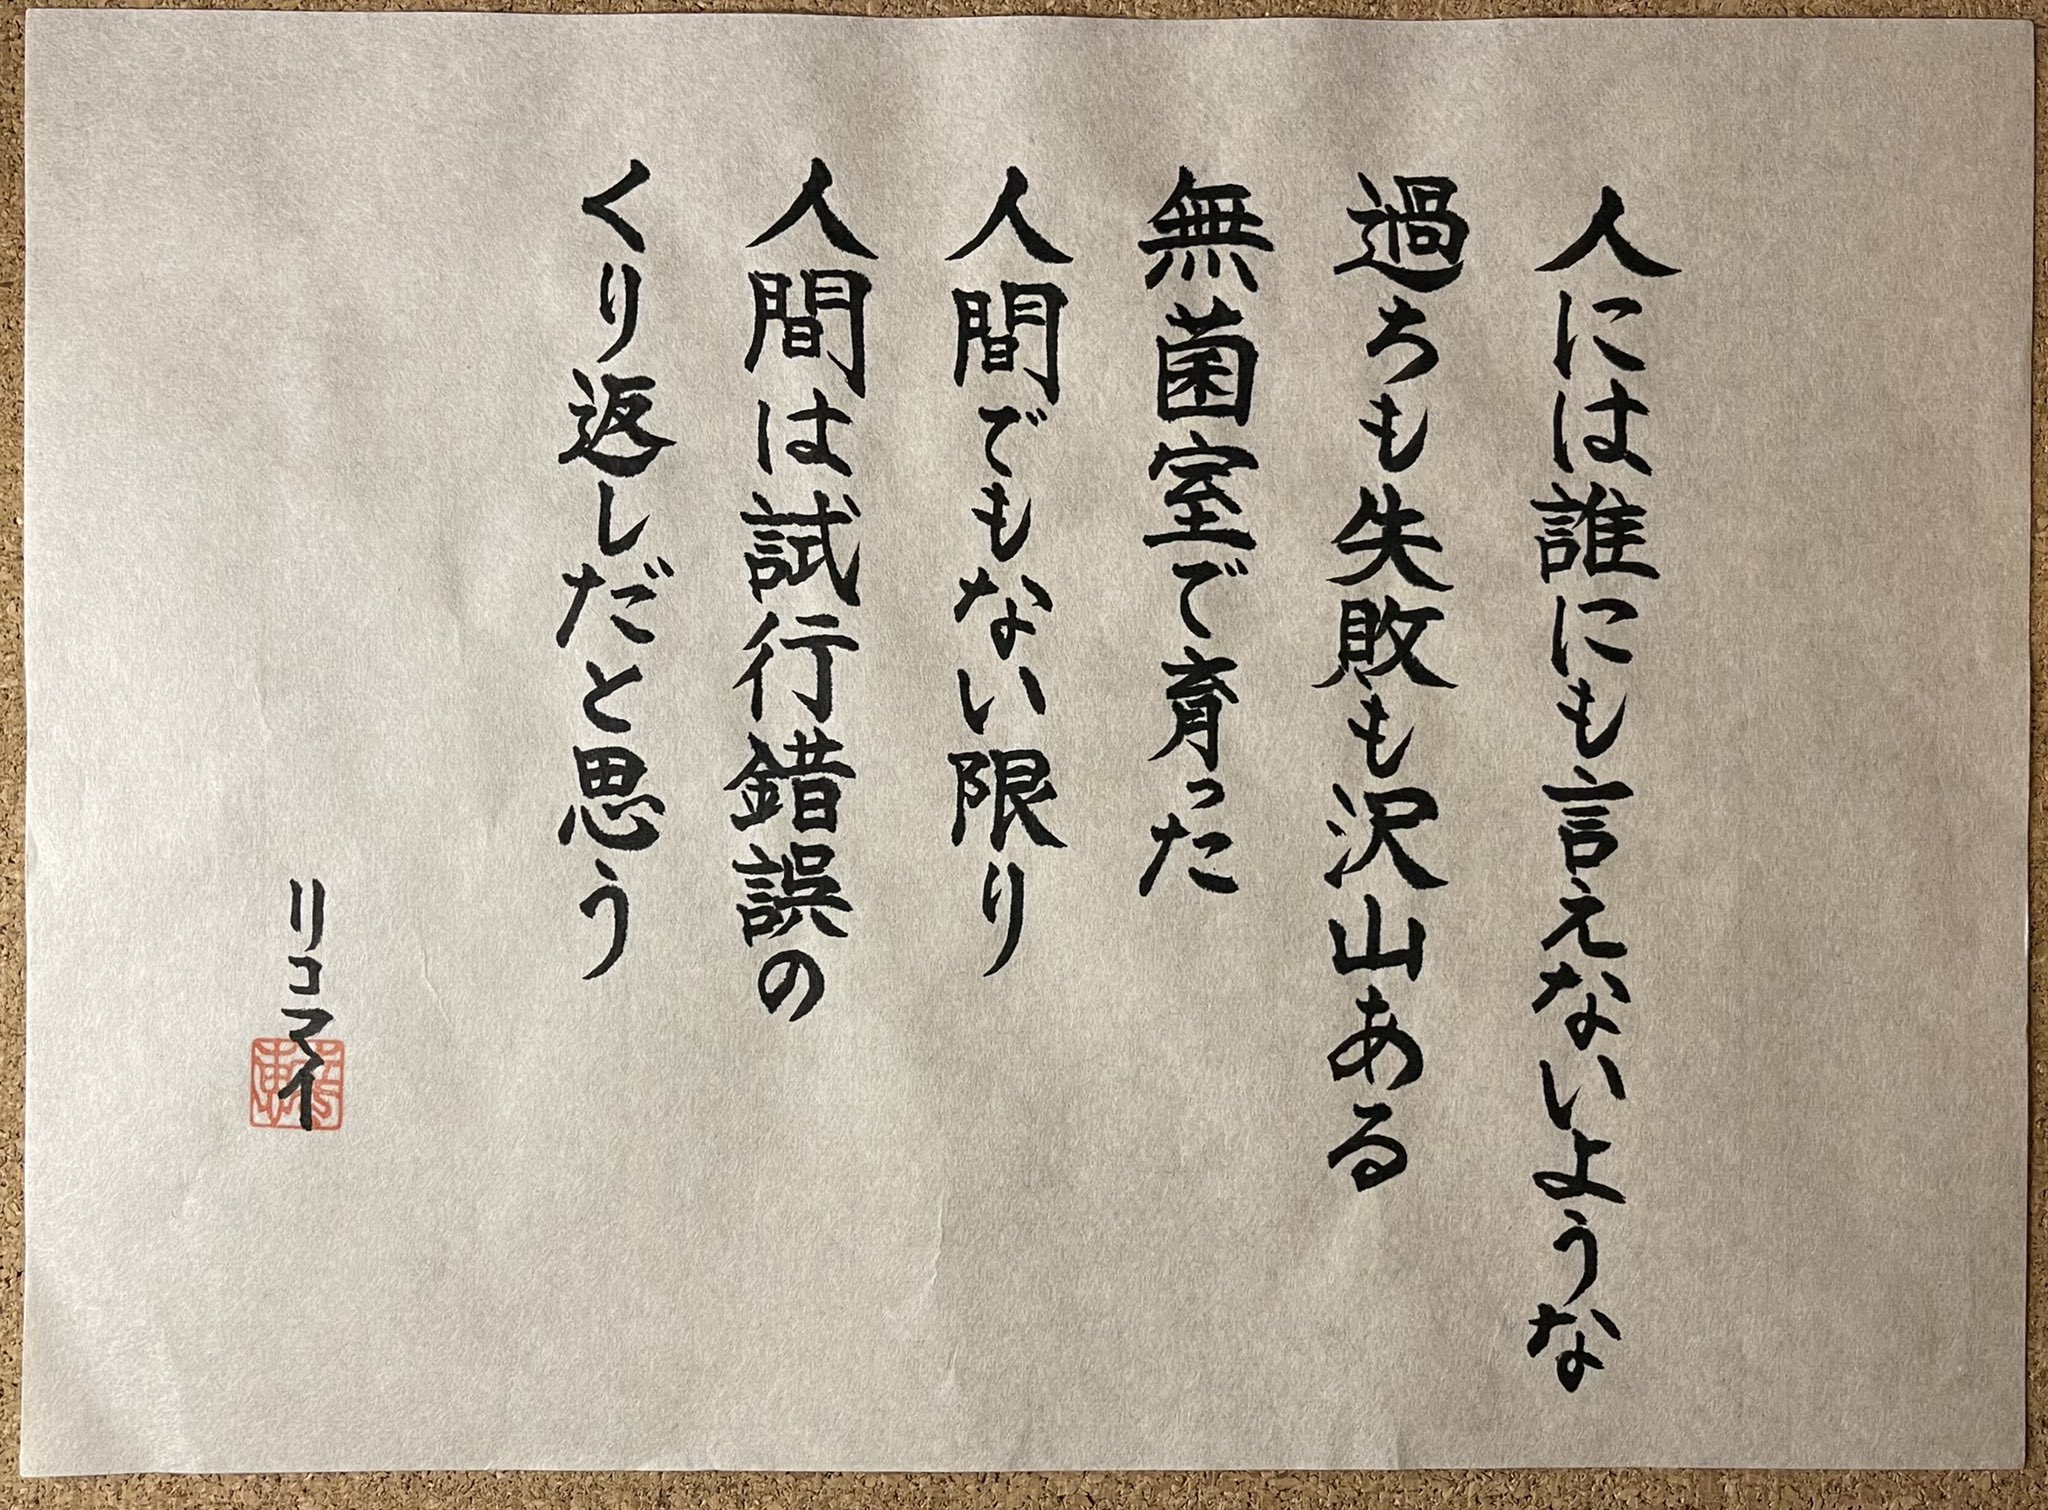 人には誰にも言えないような
過ちも失敗も沢山ある
無菌室で育った
人間でもない限り
人間は試行錯誤の
くり返しだと思う
リコマイ